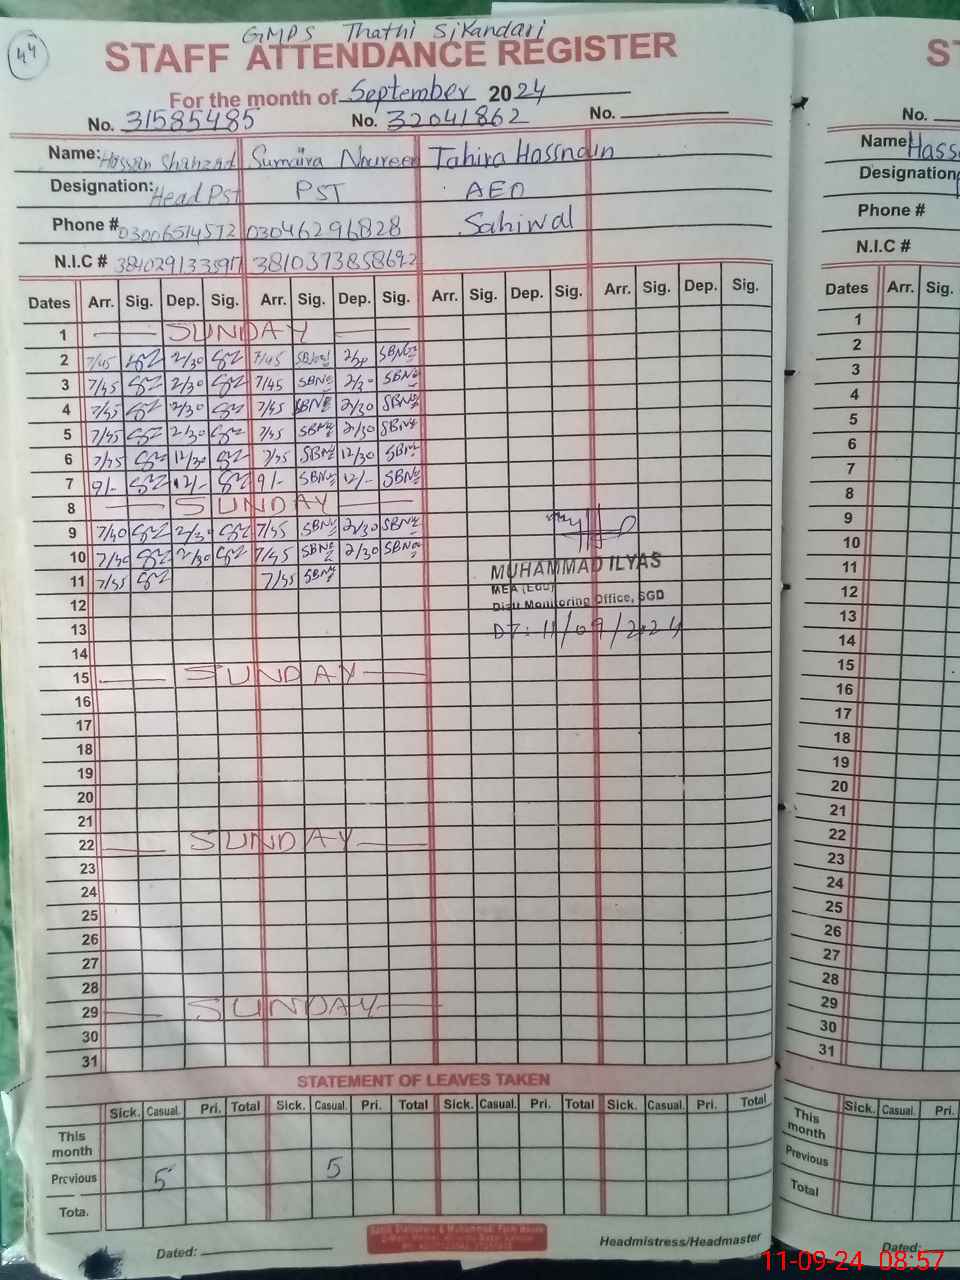 44
GMPS Thathi Sikandari
STAFF ATTENDANCE REGISTER
For the month of September 2024
No. 31585485 No. 32041862 No.
Name: Hassan Shahzad Sumaira Noureen Tahira Hassnain
Designation: Head PST PST AEO
Phone # 03006514572 03046296828 Sahiwal
N.I.C # 3810373858692
Dates Arr. Sig. Dep. Sig. Arr. Sig. Dep. Sig. Arr. Sig. Dep. Sig. Arr. Sig. Dep. Sig.
1 SUNDAY
2 7/45 2/30 7/45 2/30
3 7/45 2/30 7/45 2/30
4 7/45 2/30 7/45 2/30
5 7/45 2/30 7/45 2/30
6 7/45 12/30 7/45 12/30
7 9/- 12/- 9/- 12/-
8 SUNDAY
9 7/40 2/30 7/45 2/30
10 7/40 2/30 7/45 2/30
11 7/45 7/45
MUHAMMAD ILYAS
MEA (Edu)
Distt Monitoring Office, SGD
DT: 11/09/2024
12
13
14
15 SUNDAY
16
17
18
19
20
21
22 SUNDAY
23
24
25
26
27
28
29 SUNDAY
30
31
STATEMENT OF LEAVES TAKEN
Sick. Casual. Pri. Total Sick. Casual. Pri. Total Sick. Casual. Pri. Total Sick. Casual. Pri. Total
This month
Previous 5 5
Tota.
Dated: Headmistress/Headmaster
ST
No.
Name: Hass
Designation
Phone #
N.I.C #
Dates Arr. Sig.
1
2
3
4
5
6
7
8
9
10
11
12
13
14
15
16
17
18
19
20
21
22
23
24
25
26
27
28
29
30
31
Sick. Casual. Pri.
This month
Previous
Total
Dated:
11-09-24 08:57